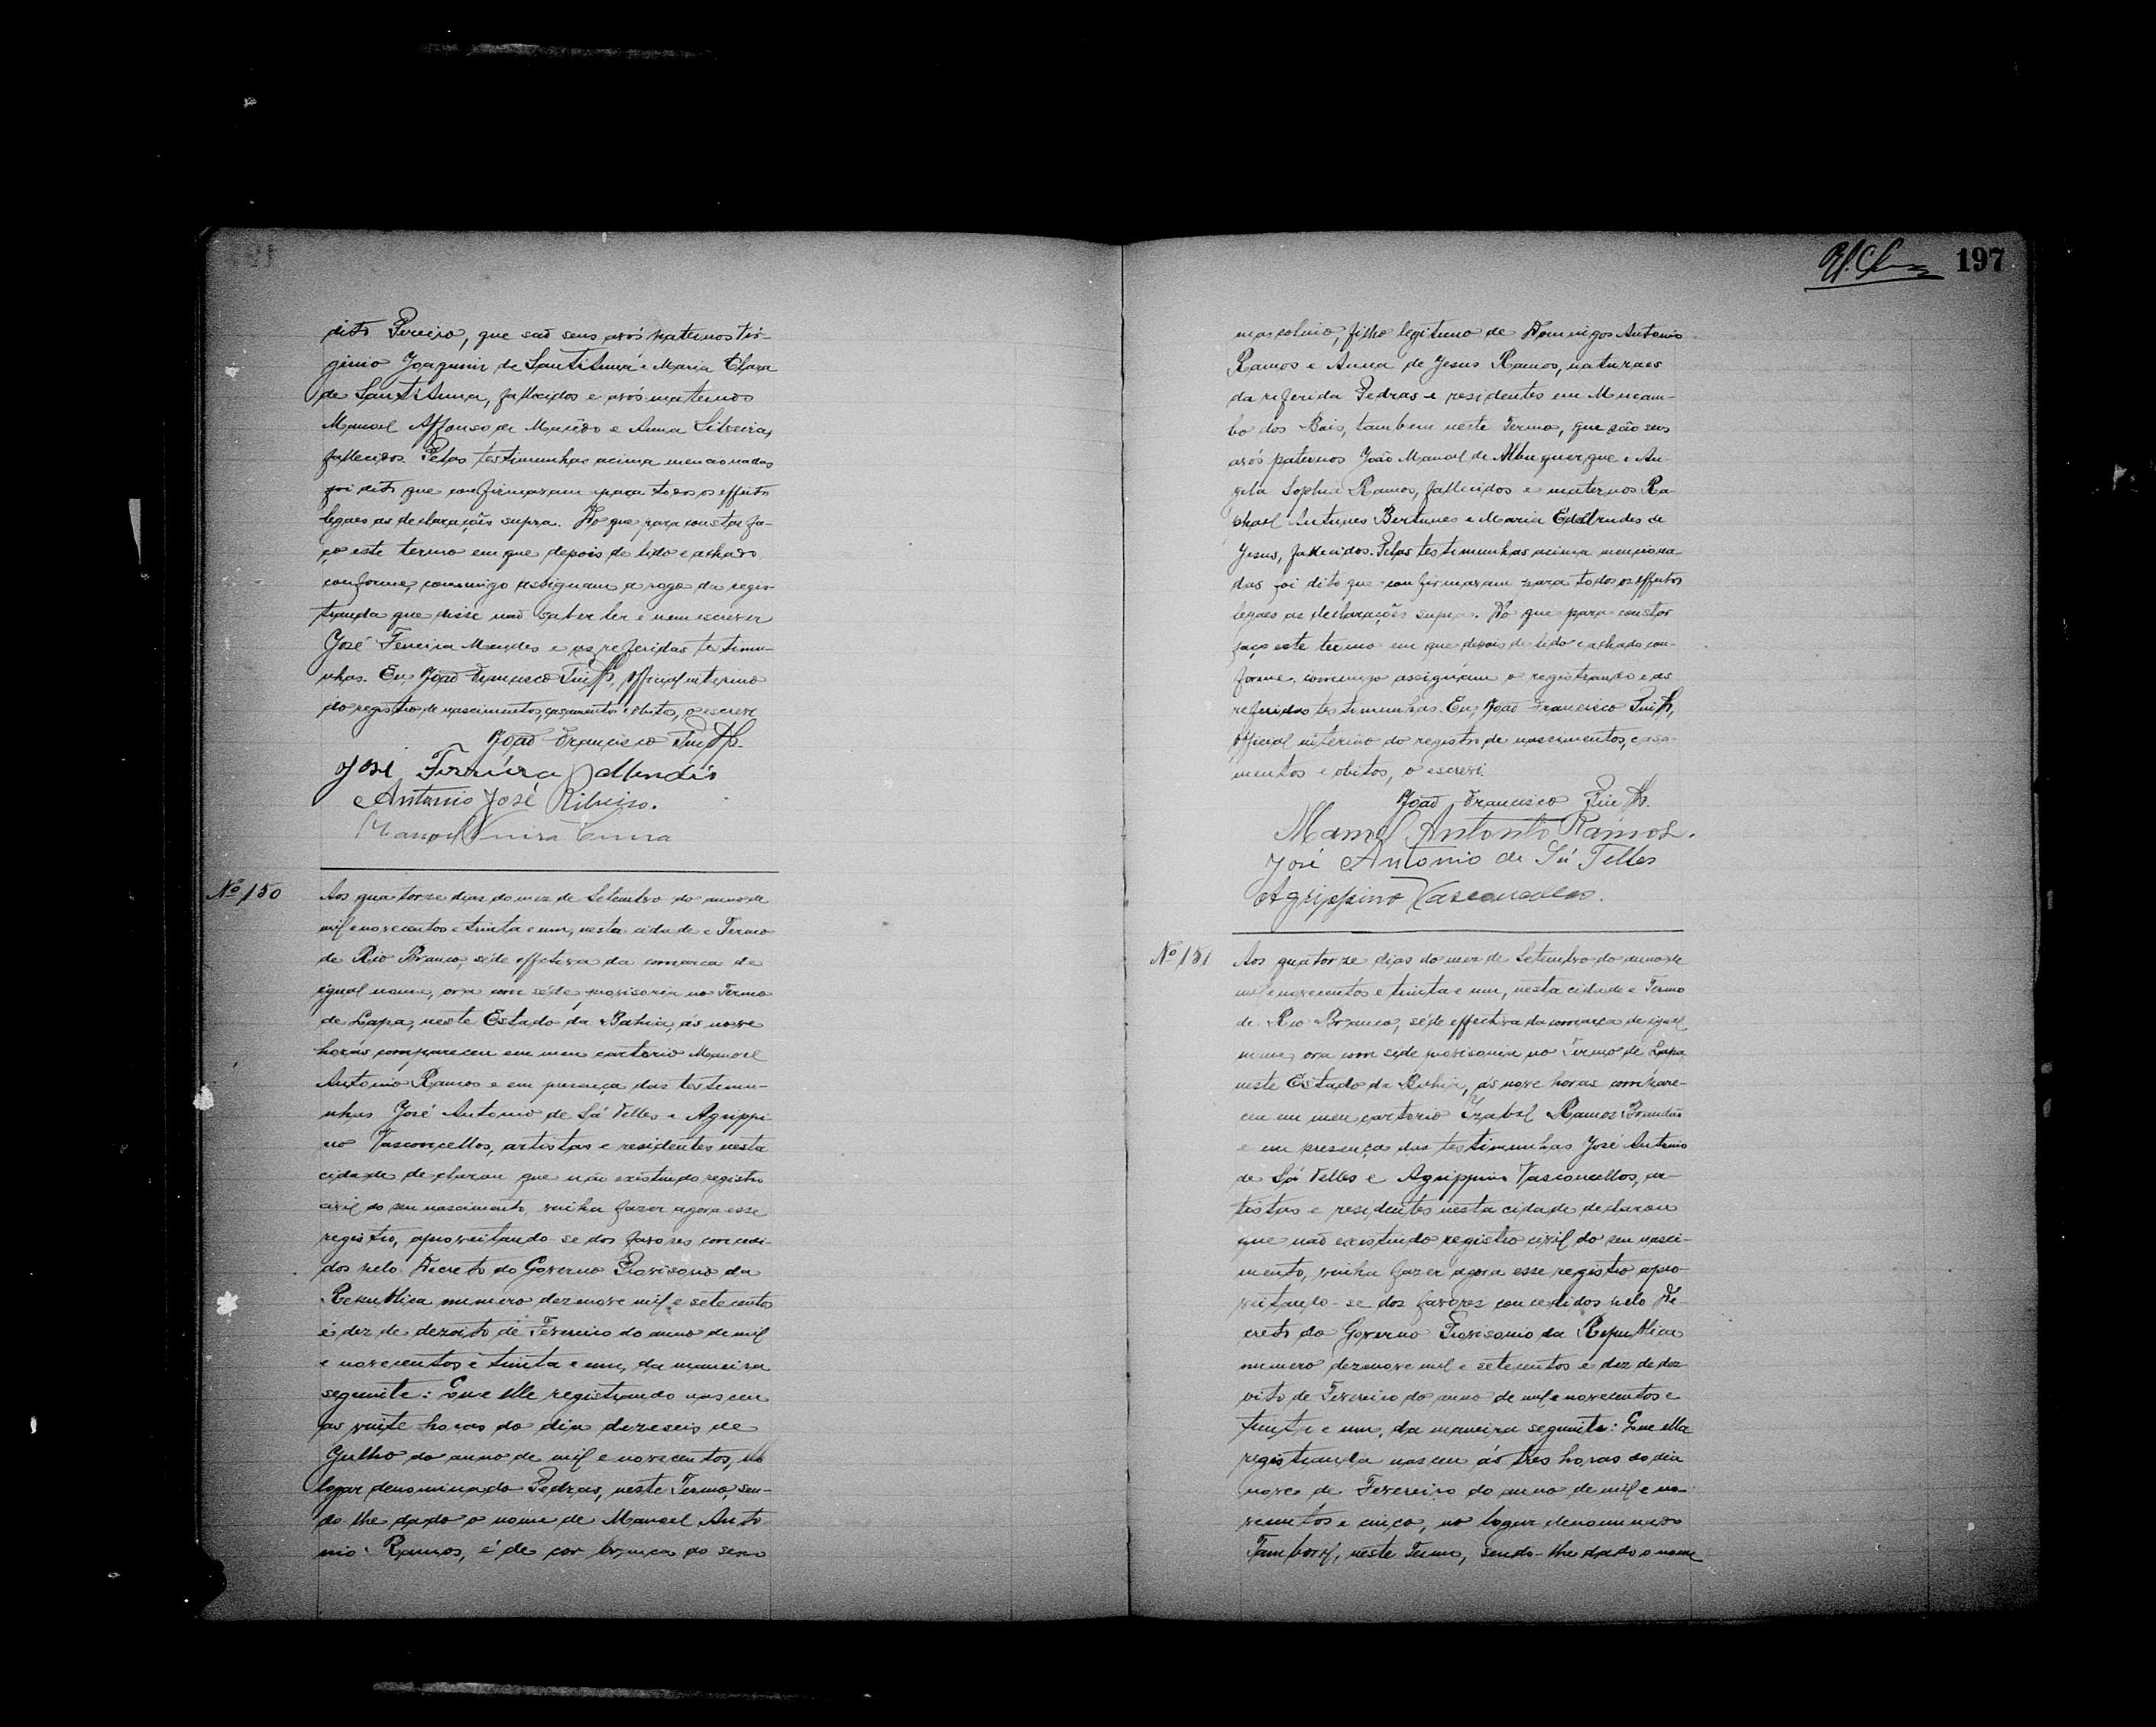 dito Pereiro, que saõ seus avós paternos Vir-
ginio Joaquim de Sant'Anna e Maria Clara
de Sant'Anna, fallecidos e avós maternos
Manoel Affonso de Macêdo e Anna Silveira,
fallecidos. Pelas testimunhas acima mencionadas
foi dito que confirmavam para todos os effeitos
legaes as declarações supra. Do que para constar fa-
ço este termo em que depois de lido e achado
conforme, commigo assignam a rogo da regis-
tranda que disse naõ saber ler e nem escrever
José Ferreira Mendes e as referidas testimu-
nhas. Eu, Joaõ Francisco, official interino
do registro de nascimentos, casamentos e obitos, o escrevi
Joaõ Francisco
José Ferreira Mendes
Antonio José Ribeiro.
Manoel
Nº 150
Aos quatorze dias do mez de Setembro do anno de
mil e novecentos e trinta e um, nesta cidade e Termo
de Rio Branco, séde effectiva da comarca de
igual nome, ora com séde provisoria no Termo
de Lapa, neste Estado da Bahia, ás nove
horas compareceu em meu cartorio Manoel
Antonio Ramos e em presença das testimu-
nhas José Antonio de Sá Telles e Agrippi-
no Vasconcellos, artistas e residentes nesta
cidade declarou que não existindo registro
civil do seu nascimento, vinha fazer agora esse
registro, aproveitando-se dos favores concedi-
dos pelo Decreto do Governo Provisorio da
Republica numero dezenove mil e setecentos
e dez de dezoito de Fevereiro do anno de mil
e novecentos e trinta e um, da maneira
seguinte: Que elle registrando nasceu
as vinte horas do dia dezeseis de
Julho do anno de mil e novecentos, no
logar denominado Pedras, neste Termo, sen-
do lhe dado o nome de Manoel Anto-
nio Ramos, é de cor branca do sexo
197
masculino, filho legitimo de Domingos Antonio
Ramos e Anna de Jesus Ramos, naturaes
da referida Pedras e residentes em Mucam-
bo dos Bois, tambem neste Termo, que são seus
avós paternos João Manoel de Albuquerque e An-
gela Sophia Ramos, fallecidos e maternos Ra-
phael Antunes Bertunes e Maria Edeltrudes de
Jesus, fallecidos. Pelas testimunhas acima menciona-
das foi dito que confirmavam para todos os effeitos
legaes as declarações supra. Do que para constar
faço este termo em que depois de lido e achado con-
forme, commigo assignam o registrando e as
referidas testimunhas. Eu, Joaõ Francisco,
official interino do registro de nascimentos, casa-
mentos e obitos, o escrevi.
Joaõ Francisco
Manoel Antonio Ramos.
José Antonio de Sá Telles
Agrippino Vasconcellos.
Nº 151
Aos quatorze dias do mez de Setembro do anno de
mil e novecentos e trinta e um, nesta cidade e Termo
de Rio Branco, séde effectiva da comarca de igual
nome, ora com séde provisoria no Termo de Lapa
neste Estado da Bahia, ás nove horas compare-
ceu em meu cartorio Izabel Ramos Brandão
e em presença das testimunhas José Antonio
de Sá Telles e Agrippino Vasconcellos, ar-
tistas e residentes nesta cidade declarou
que naõ existindo registro civil do seu nasci-
mento, vinha fazer agora esse registro apro-
veitando-se dos favores concedidos pelo De-
creto do Governo Provisorio da Republica
numero dezenove mil e setecentos e dez de dez-
oito de Fevereiro do anno de mil e novecentos e
trinta e um, da maneira seguinte: Que ella
registranda nasceu ás tres horas do dia
nove de Fevereiro do anno de mil e no-
vecentos e cinco, no logar denominado
Tamboril, neste Termo, sendo-lhe dado o nome